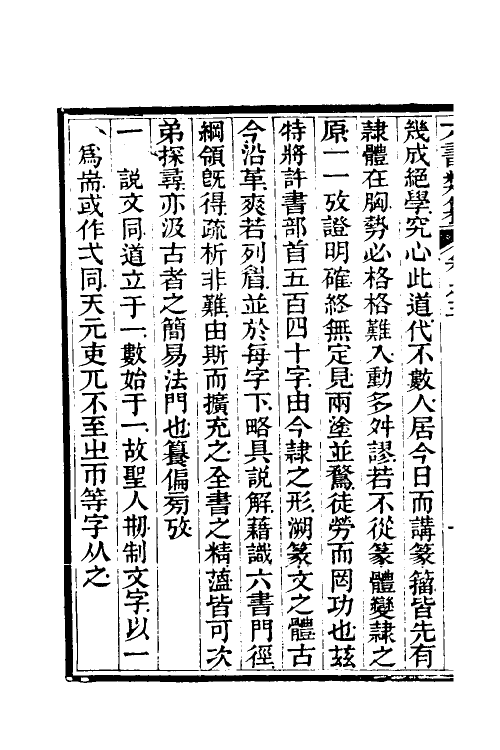 幾成絕學究心此道代不數人居今日而講篆籀皆先有
隸體在胸勢必格格難入動多舛謬若不從篆體變隸之
原一一攷證明確終無定見兩塗並騖徒勞而罔功也茲
特將許書部首五百四十字由今隸之形溯篆文之體古
今沿革爽若列眉並於每字下略具說解藉識六書門徑
綱領旣得疏析非難由斯而擴充之全書之精蘊皆可次
弟探尋亦汲古者之簡易法門也纂偏㫄攷
一　說文同道立于一數始于一故聖人刱制文字以一
爲耑或作弌同天元吏兀不至㞢帀等字从之